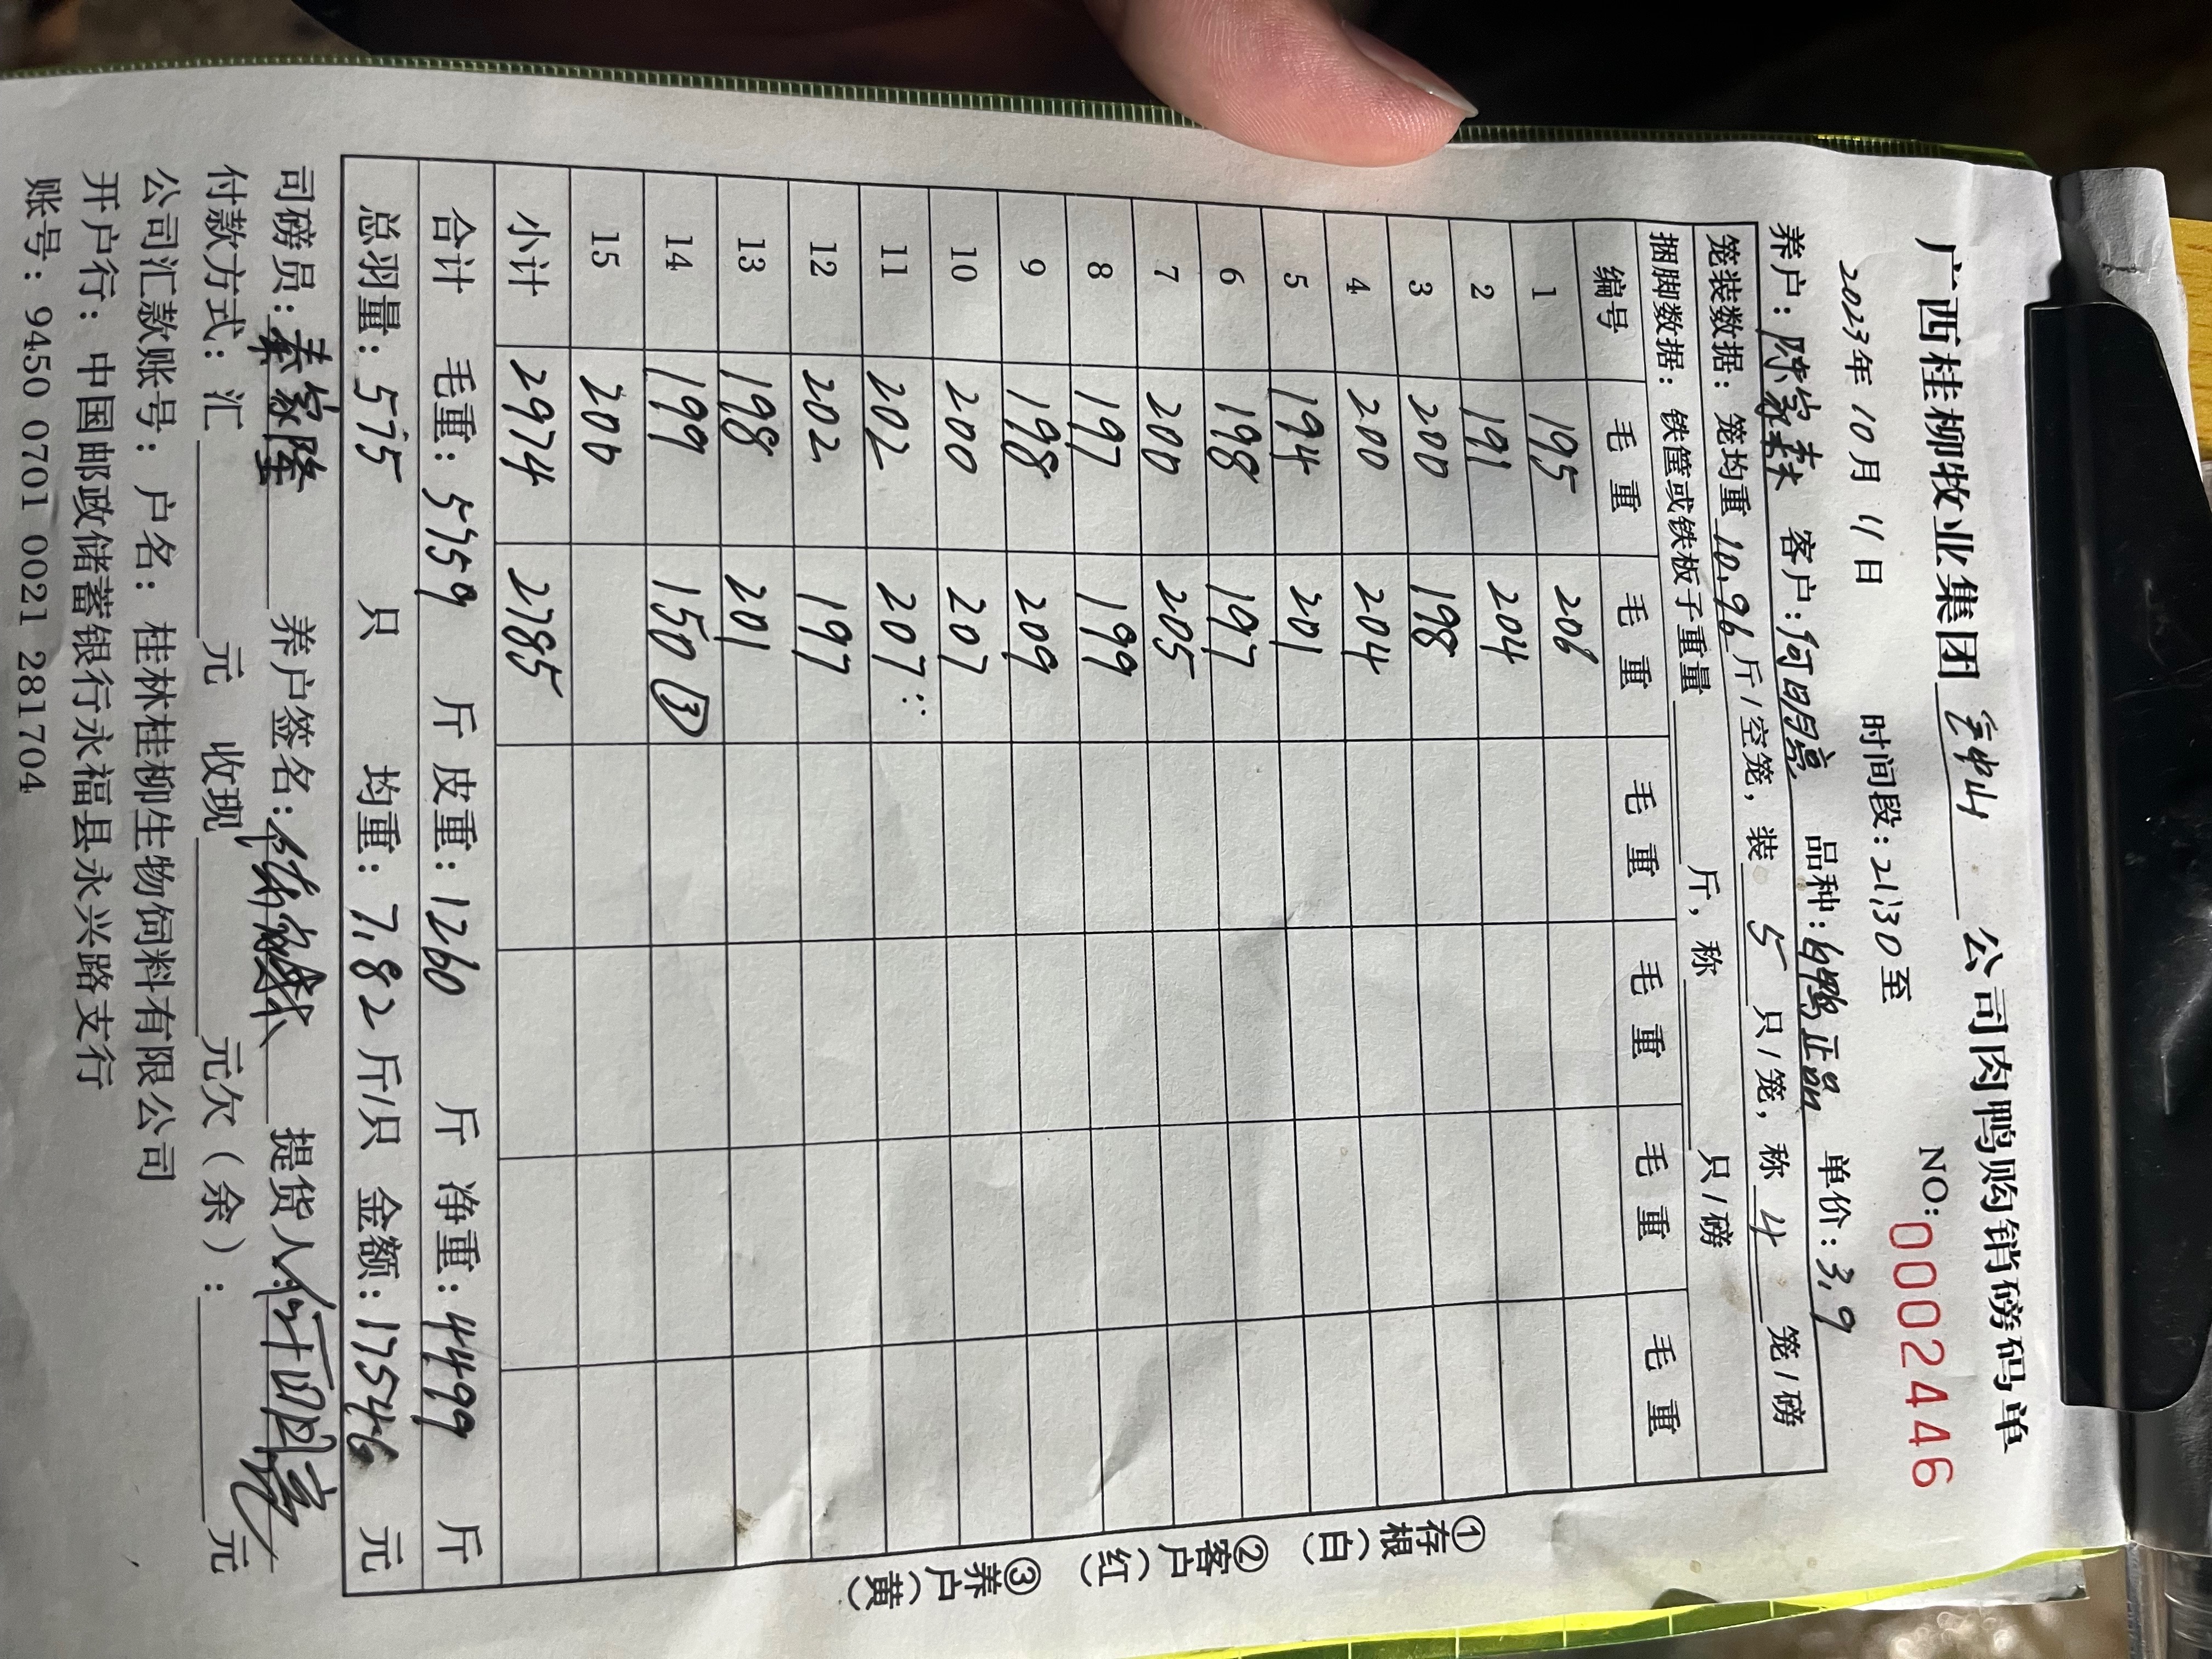 广西桂柳牧业集团 公司肉鸭购销磅码单
NO: 0002446
2023年10月11日 时间段:21:30至
养户:陈家森 客户:何明亮 品种:白鸭正品 单价:3.9
笼装数据:笼均重10.96斤/空笼,装5只/笼,称4笼/磅
捆脚数据:铁筐或铁板子重量 斤,称 只/磅
编号 毛重 毛重 毛重 毛重 毛重 毛重
1 195 206
2 191 204
3 200 198
4 200 204
5 194 201
6 198 197
7 200 205
8 197 199
9 198 209
10 200 207
11 202 207
12 202 197
13 198 201
14 199 150 ③
15 200
小计 2974 2785
合计 毛重:5759 斤 皮重:1260 斤 净重:4499 斤
总羽量:575 只 均重:7.82斤/只 金额:17546 元
司磅员:秦家隆 养户签名: 提货人:何明亮
付款方式:汇 元 收现 元欠(余): 元
公司汇款账号:户名:桂林桂柳生物饲料有限公司
开户行:中国邮政储蓄银行永福县永兴路支行
账号:9450 0701 0021 281704
①存根(白) ②客户(红) ③养户(黄)